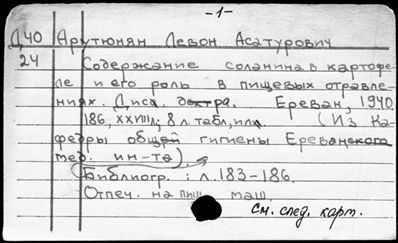 -1-
Д40 Арутюнян Левон Асатурович
24 Содержание соланина в картофе-
ле и его роль в пищевых отравле-
ниях. Дисс. доктра. Ереван, 1940
186, XXVIIIл; 8 л. табл, илл. (Из Ка-
федры общей гигиены Ереванского
мед. ин-та).
(Библиогр.: л. 183-186.
Отпеч. на пиш маш
См. след. карт.